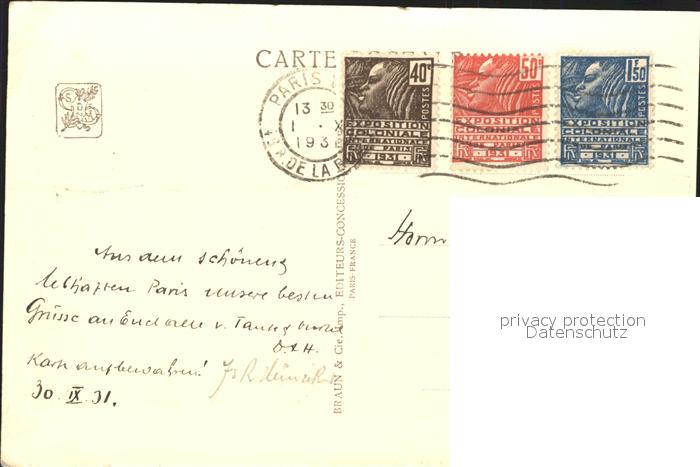 CARTE POSTALE
PARIS
13 30
1 X
193
R. DE LA B
40c
POSTES
EXPOSITION
COLONIALE
INTERNATIONALE
DE PARIS
1931
50c
POSTES
EXPOSITION
COLONIALE
INTERNATIONALE
DE PARIS
1931
1F50
POSTES
EXPOSITION
COLONIALE
INTERNATIONALE
DE PARIS
1931
BRAUN & Cie, Imp., EDITEURS-CONCESSIO
PARIS-FRANCE
Aus dem schönen,
lebhaften Paris unsere besten
Grüsse an Euch alle v. Tante
Karte aufbewahren!
30. IX. 31.
Herrn
privacy protection
Datenschutz